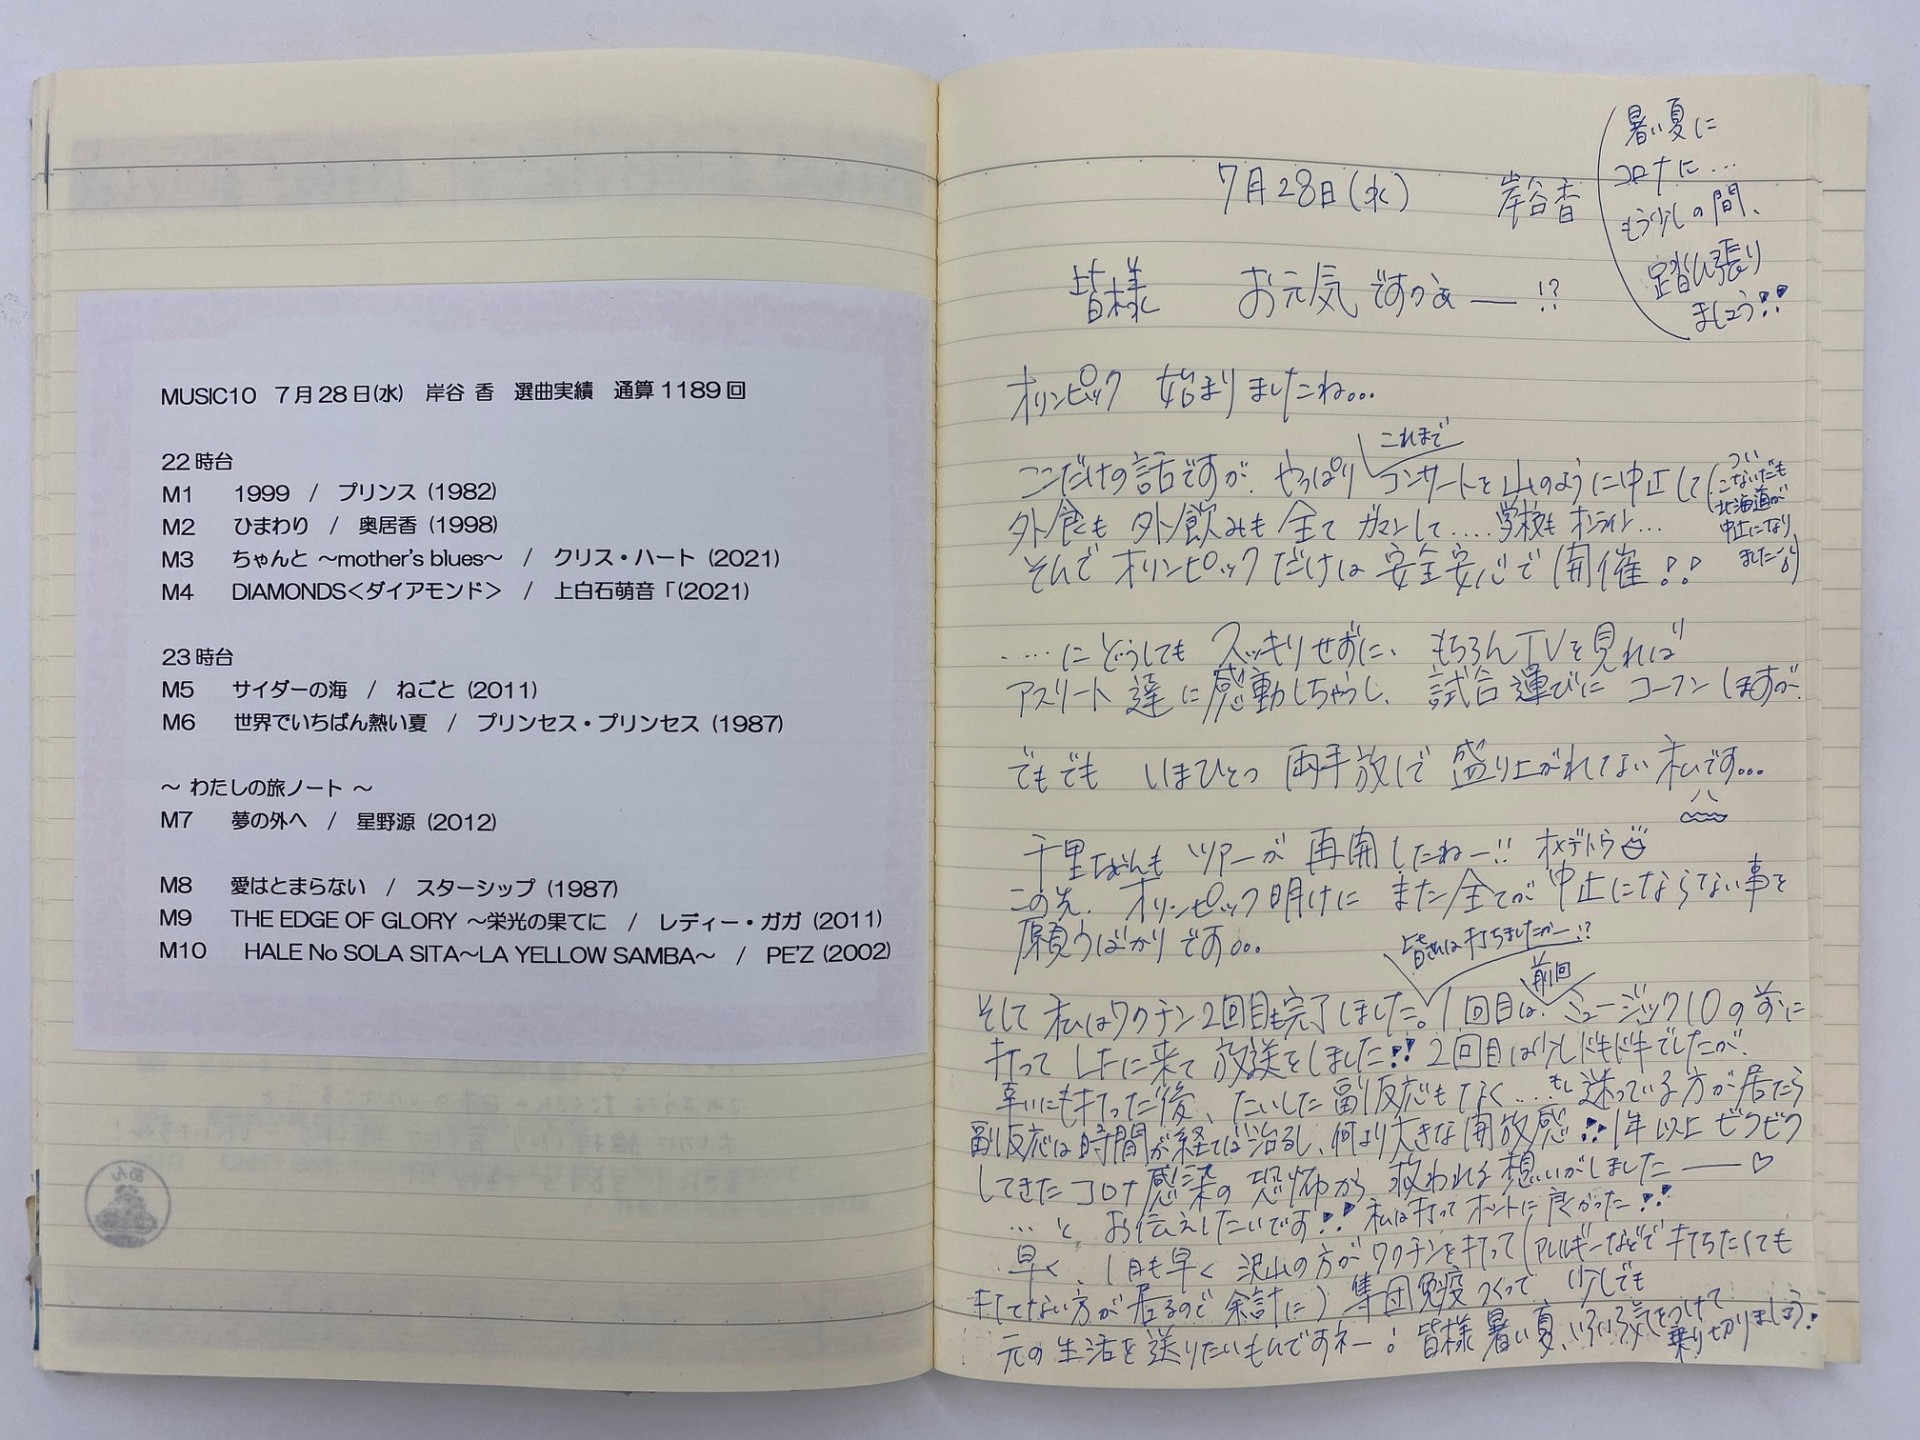 MUSIC10 7月28日(水) 岸谷 香 選曲実績 通算1189回
22時台
M1 1999 / プリンス (1982)
M2 ひまわり / 奥居香 (1998)
M3 ちゃんと ～mother's blues～ / クリス・ハート (2021)
M4 DIAMONDS<ダイアモンド> / 上白石萌音「(2021)
23時台
M5 サイダーの海 / ねごと (2011)
M6 世界でいちばん熱い夏 / プリンセス・プリンセス (1987)
～ わたしの旅ノート ～
M7 夢の外へ / 星野源 (2012)
M8 愛はとまらない / スターシップ (1987)
M9 THE EDGE OF GLORY ～栄光の果てに / レディー・ガガ (2011)
M10 HALE No SOLA SITA～LA YELLOW SAMBA～ / PE'Z (2002)
7月28日(水) 岸谷香
暑い夏に
コロナに…
もう少しの間、
踏ん張り
ましょう!!
皆様 お元気ですかぁー!?
オリンピック 始まりましたね...
ここだけの話ですが、やっぱり これまで コンサートを山のように中止して
(つい
こないだも
北海道が
中止になり
ました
外食も 外飲みも 全て ガマンして.....学校も オンライン...
そんで オリンピックだけは 安全安心で 開催!!
.....にどうしても スッキリせずに、もちろんTVを見れば
アスリート達に感動しちゃうし、試合運びに コーフンしますが、
でもでも いまひとつ 両手放しで 盛り上がれてない 私です...
千里さんも ツアーが 再開したねー!! オメデトウ
この先、オリンピック明けに また全てが 中止にならない事を
願うばかりです...
皆さんは打ちましたかー!?
前回
そして 私はワクチン2回目も完了しました。1回目は、ミュージック10の前に
打って しTに来て 放送をしました!! 2回目は少しドキドキでしたが、
幸いにも打った後、たいした副反応もなく....もし迷っている方が居たら
副反応は時間が経てば治るし、何より大きな開放感!! 1年以上 ビクビク
してきたコロナ感染の 恐怖から 救われる想いがしましたー♡
...と、お伝えしたいです!! 私は打って ホントに良かった!!
早く、1日も早く 沢山の方が ワクチンを打って(アレルギーなどで 打ちたくても
打てない方が居るので 余計に) 集団免疫つくって 少しでも
元の生活を送りたいもんですネー! 皆様 暑い夏、いろいろ気をつけて
乗り切りましょう!